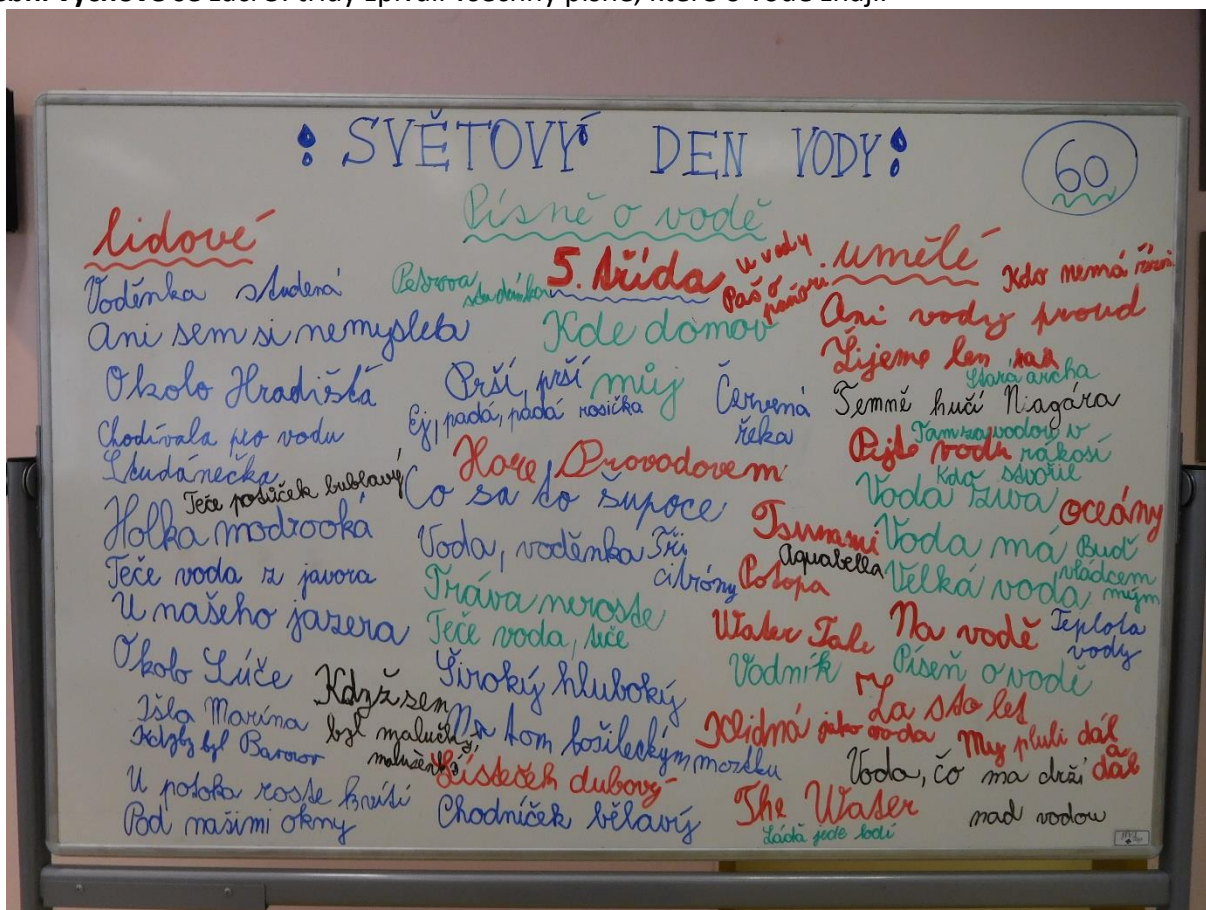 výchově se žáci 5. třídy zpívali všechny písně, které o vodě znají.
SVĚTOVÝ DEN VODY
60
Písně o vodě
5. třída
lidové
Voděnka studená
Ani sem si nemysleła
Okolo Hradišťa
Chodívala pro vodu
Studánečka
Teče potůček bublavý
Holka modrooká
Teče voda z javora
U našeho jazera
Okolo Súče
Išla Marína
Kdyby byl Bavorov
U potoka roste kvítí
Pod našimi okny
Petrova studánka
Kde domov můj
Prší, prší
Ej, padá, padá rosička
Červená řeka
Hore, Provodovem
Co sa to šupoce
Voda, voděnka
Tři citróny
Tráva neroste
Teče voda, teče
Široký hluboký
Když sem byl malučký, malučenký
Na tom bošileckým mostku
Lísteček dubový
Chodníček bělavý
umělé
U vody
Paš o paňori
Kdo nemá
Ani vody proud
Žijeme len raz
Stará archa
Temně hučí Niagára
Pijte vodu
Tam za vodou v rákosí
Kdo stvořil oceány
Voda živá
Tsunami
Voda má
Buď vládcem mým
Aquabella
Potopa
Velká voda
Water Tale
Na vodě
Teplota vody
Vodník
Píseň o vodě
Za sto let
Klidná jako voda
My pluli dál a dál
Voda, čo ma drží nad vodou
The Water
Láďa jede lodí